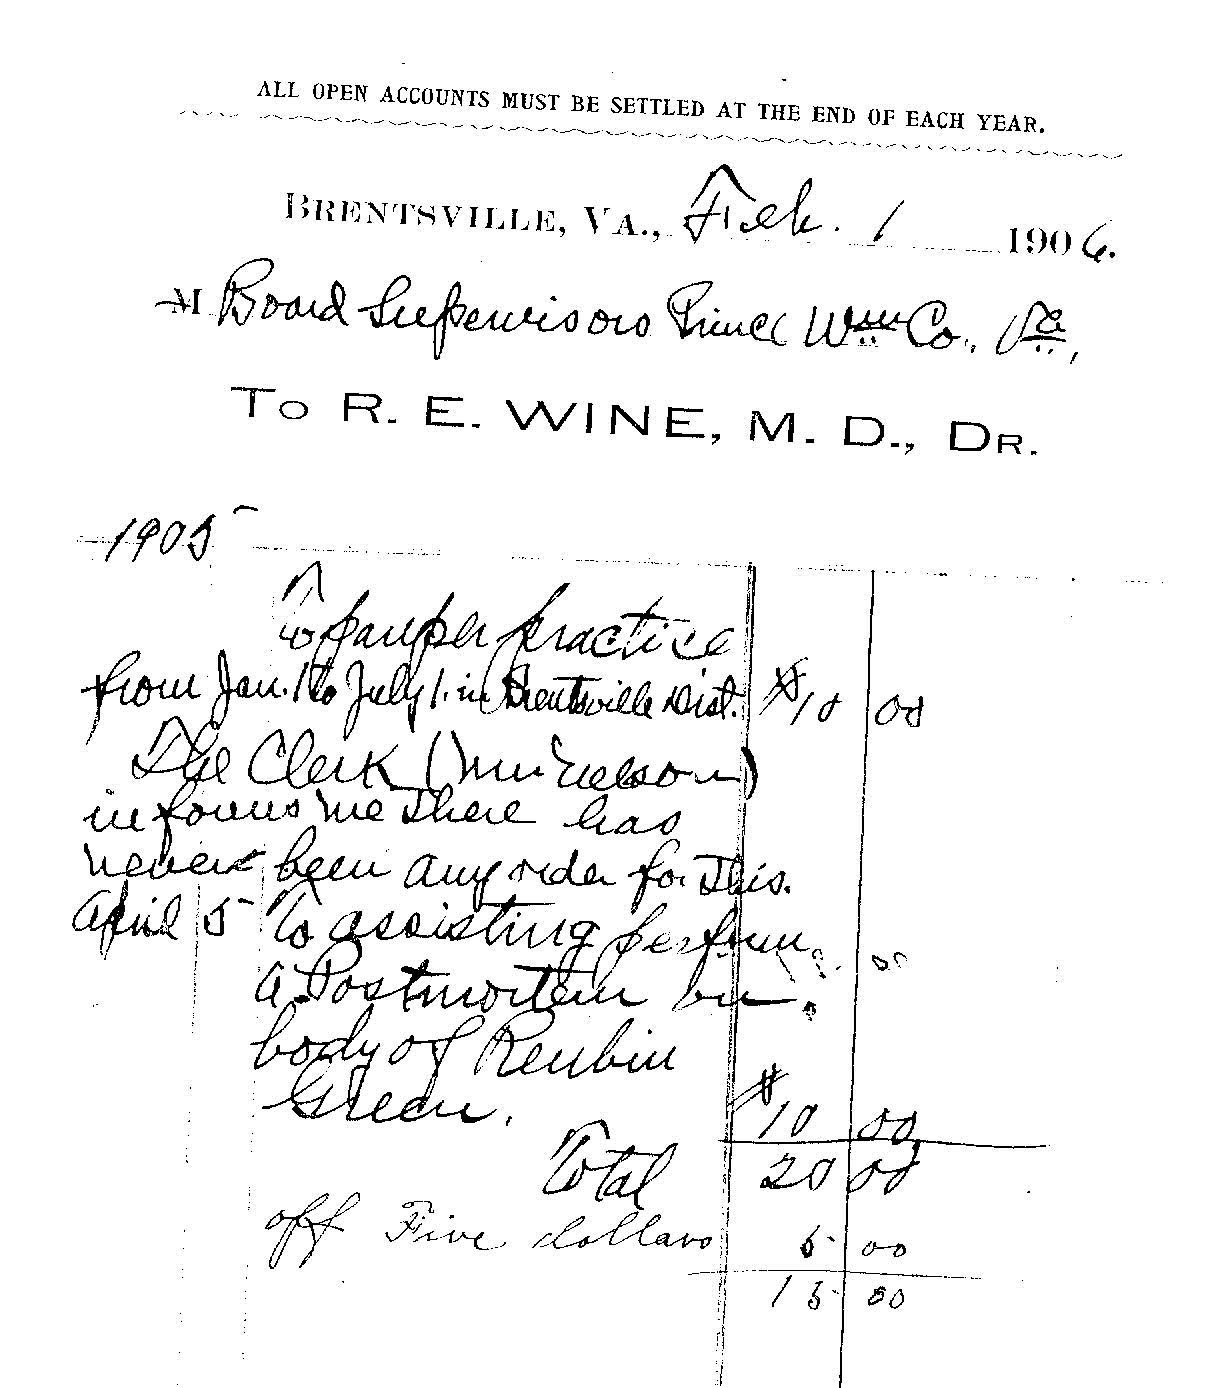 ALL OPEN ACCOUNTS MUST BE SETTLED AT THE END OF EACH YEAR.
BRENTSVILLE, VA., Feb. 1 1906.
M Board Supervisors Prince Wm Co., Va,
TO R. E. WINE, M. D., DR.
1905
To pauper practice
from Jan. 1 to July 1. in Brentsville Dist. $10 00
The Clerk (Mr Nelson)
informs me there has
never been any order for This.
April 5 To assisting perform
a Postmortem on
body of Reubin
Green. $10 00
Total 20 00
off Five dollars 5 00
15 00